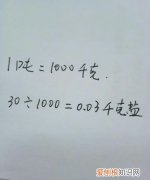 1吨=1000千克.
30÷1000=0.03千克盐
爱剪辑知识网